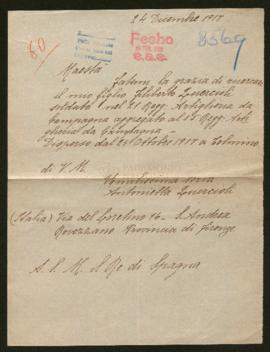 24 Dicembre 1917
60/
Fecho
e.a.e.
8569
Maestà
Fatemi la grazia di ricercare
il mio figlio Filiberto Quercioli
soldato nel 21 Regg. Artiglieria da
Campagna aggregato al 15 Regg. Arti
glieria da Campagna
Disperso dal 24 Ottobre 1917 a Tolmino
di V. M.
Umilissima serva
Antonietta Quercioli
(Italia) Via del 16 - S. Andrea
Rovezzano Provincia di Firenze
A. S. M. il Re di Spagna